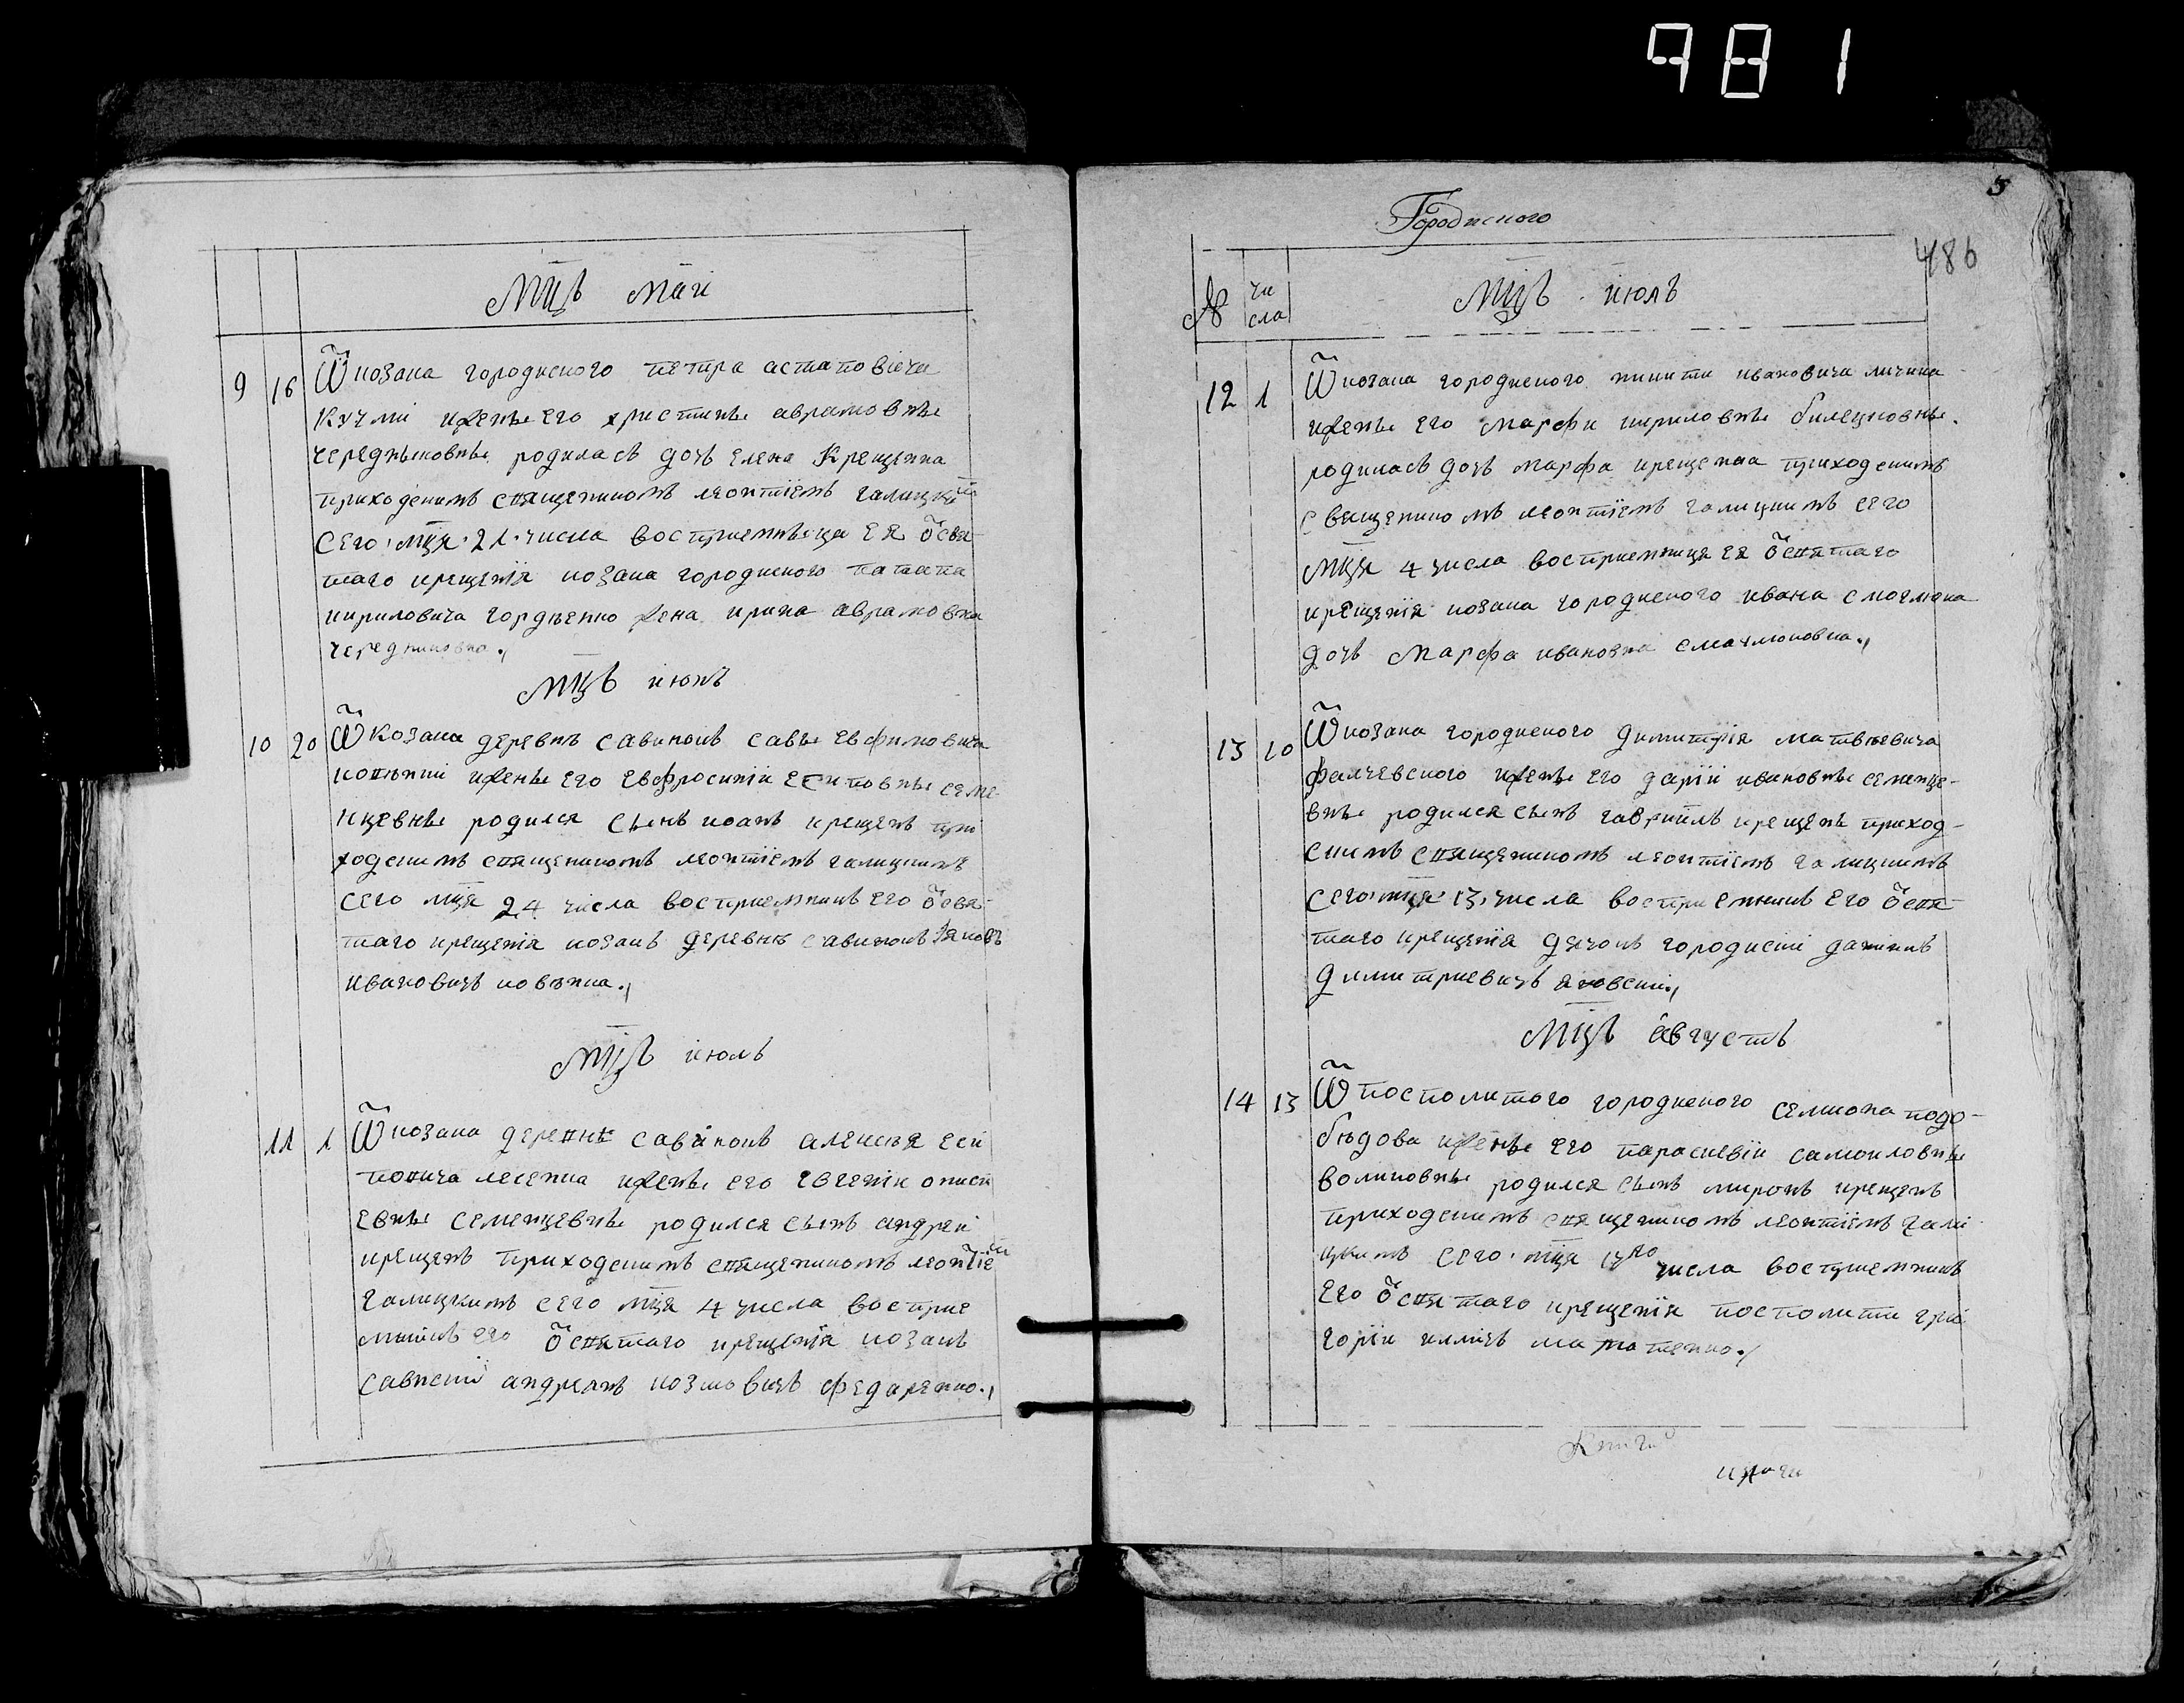 981
Мц҃ъ маи
9 16 Ѿ козака городиского петра астаповіча
кучми и женѣ его христинѣ аврамовнѣ
чередниковнѣ родиласъ дочъ елена крещенна
приходскимъ священикомъ леонтіемъ галицким
сего мц҃я 21 числа восприемница ея ѿ свя
таго крещенія козака городиского патапа
кириловича гордѣенко жена ирина аврамовна
чередниковна.
Мц҃ъ июнъ
10 20 Ѿ козака деревнѣ савинокъ савы евфимовича
и женѣ его евфросиніи есиповнѣ семе
нцевнѣ родился сынъ иоанъ крещенъ при
ходскимъ священикомъ леонтіемъ галицкимъ
сего мц҃я 24 числа восприемникъ его ѿ свя
таго крещенія козакъ деревнѣ савинокъ яковъ
ивановичъ
Мц҃ъ июлъ
11 1 Ѿ козака деревнѣ савинокъ алексѣя еси
повича лесенка и женѣ его евгеніи
евнѣ семенцевнѣ родился сынъ андреи
крещенъ приходскимъ священикомъ леонтіем
галицкимъ сего мц҃я 4 числа восприе
мникъ его ѿ святаго крещенія козакъ
савнскій козмовичъ федаренко.
5
Городиского
486
№ чи
сла
Мц҃ъ июлъ
12 1 Ѿ козака городиского никити ивановича личика
и женѣ его марфи кириловнѣ билецковнѣ.
родиласъ дочъ марфа крещенаа приходскимъ
свещеникомъ леонтіемъ галицкимъ сего
мц҃я 4 числа восприемница ея ѿ святаго
крещенія козака городиского ивана смоглюка
дочъ марфа ивановна
13 10 Ѿ козака городиского димитрія матвѣевича
фалчевского и женѣ его даріи ивановнѣ семенце-
внѣ родился сынъ гавріилъ крещенъ приход-
скимъ священикомъ леонтіемъ галицкимъ
сего мц҃я 13 числа восприемникъ его ѿ свя
таго крещенія дячокъ городискі
димитриевичъ яновскі.
Мц҃ъ августъ
14 13 Ѿ посполитого городиского семиона подо-
бѣдова и женѣ его параскевіи самоиловнѣ
воликовнѣ родился сынъ миронъ крещенъ
приходскимъ священикомъ леонтіемъ галі
цкимъ сего мц҃я 17го числа восприемникъ
его ѿ святаго крещенія посполити гри
горіи илличъ